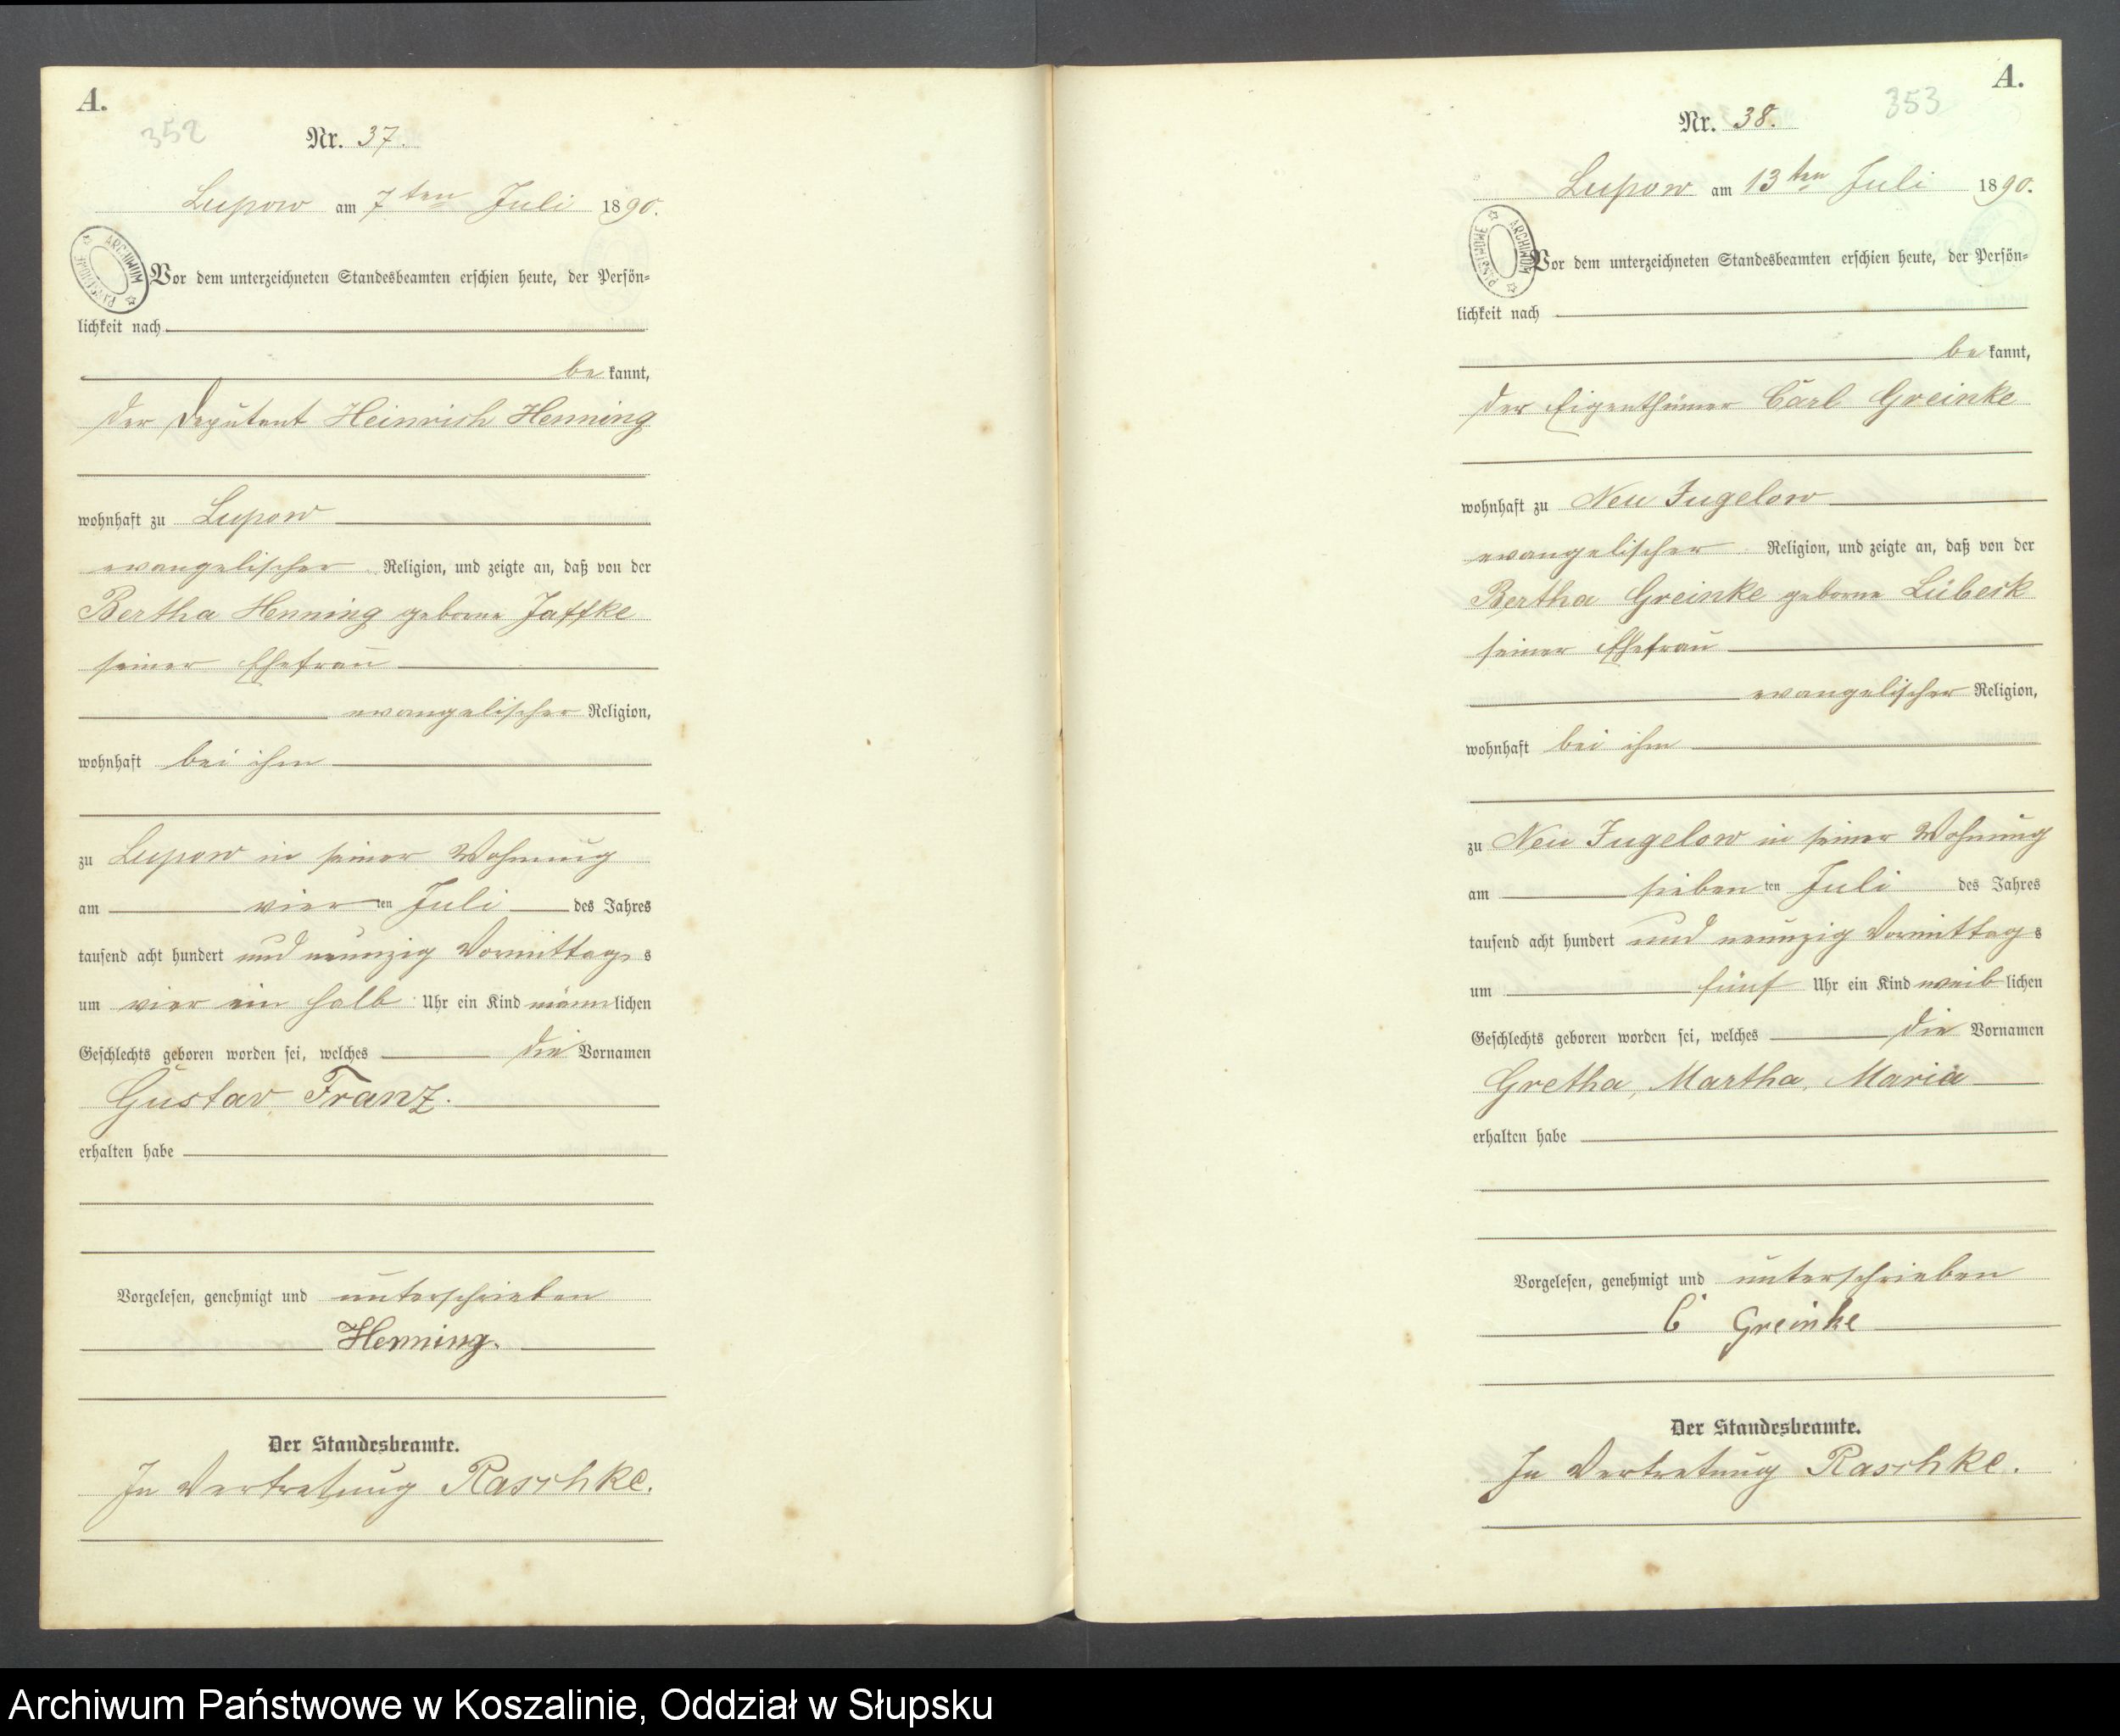 A.
352
Nr. 37.
Lupow am 7ten Juli 1890.
ARCHIWUM PAŃSTWOWE
Vor dem unterzeichneten Standesbeamten erschien heute, der Persön-
lichkeit nach
be kannt,
der Deputant Heinrich Henning
wohnhaft zu Lupow
evangelischer Religion, und zeigte an, daß von der
Bertha Henning geborne Jaffke
seiner Ehefrau
evangelischer Religion,
wohnhaft bei ihm
zu Lupow in seiner Wohnung
am vier ten Juli des Jahres
tausend acht hundert und neunzig Vormittag s
um vier ein halb Uhr ein Kind männ lichen
Geschlechts geboren worden sei, welches die Vornamen
Gustav Franz.
erhalten habe
Vorgelesen, genehmigt und unterschrieben
Henning.
Der Standesbeamte.
In Vertretung Raschke.
A.
353
Nr. 38.
Lupow am 13ten Juli 1890.
ARCHIWUM PAŃSTWOWE
Vor dem unterzeichneten Standesbeamten erschien heute, der Persön-
lichkeit nach
be kannt,
der Eigenthümer Carl Greinke
wohnhaft zu Neu Jugelow
evangelischer Religion, und zeigte an, daß von der
Bertha Greinke geborne Lübeck
seiner Ehefrau
evangelischer Religion,
wohnhaft bei ihm
zu Neu Jugelow in seiner Wohnung
am sieben ten Juli des Jahres
tausend acht hundert und neunzig Vormittag s
um fünf Uhr ein Kind weib lichen
Geschlechts geboren worden sei, welches die Vornamen
Gretha, Martha, Maria
erhalten habe
Vorgelesen, genehmigt und unterschrieben
C Greinke
Der Standesbeamte.
In Vertretung Raschke.
Archiwum Państwowe w Koszalinie, Oddział w Słupsku